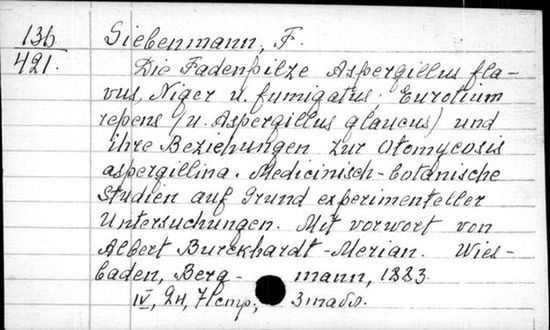 136
421.
Siebenmann, F.
Die Fadenpilze Aspergillus fla-
vus, Niger u. fumigatus, Eurotium
repens (u. Aspergillus glaucus) und
ihre Beziehungen zur Otomycosis
aspergillina. Medicinisch-botanische
Studien auf Grund experimenteller
Untersuchungen. Mit vorwort von
Albert Burckhardt-Merian. Wies-
baden, Berg- mann, 1883.
IV, 24, 71 стр.; 3 табл.